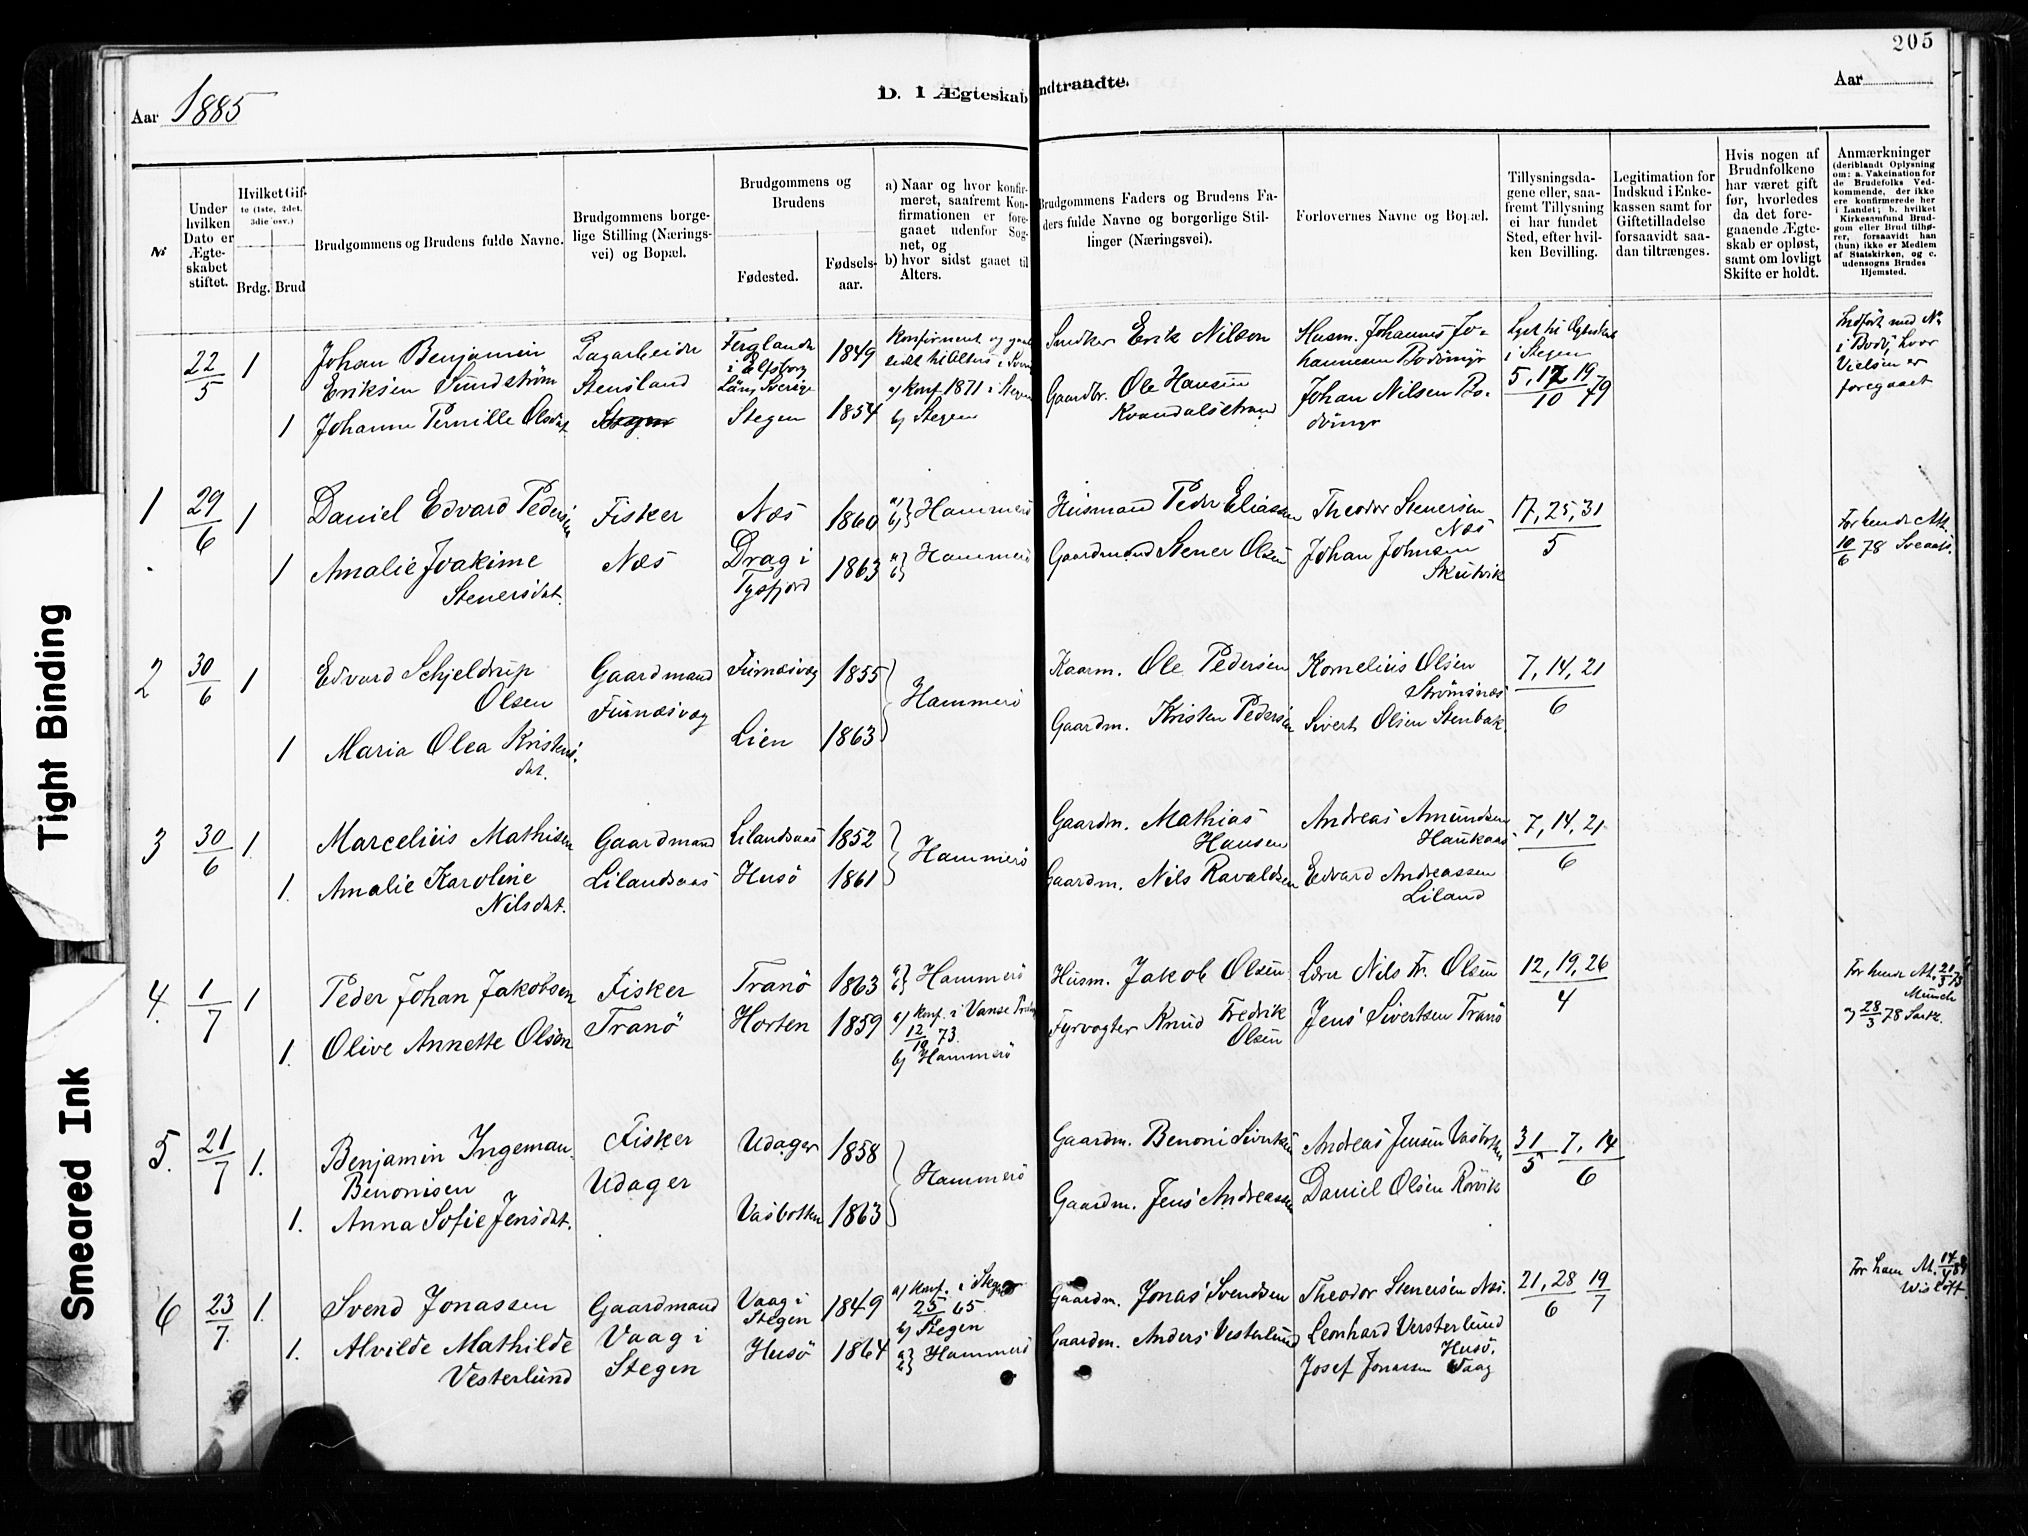 205
Aar 1885
D. I Ægteskab indtraadte.
Aar
No
Under hvilken Dato er Ægteskabet stiftet.
Hvilket Gifte (1ste, 2det, 3die osv.)
Brdg. Brud
Brudgommens og Brudens fulde Navne.
Brudgommens borgelige Stilling (Næringsvei) og Bopæl.
Brudgommens og Brudens
Fødested.
Fødselsaar.
a) Naar og hvor konfirmeret, saafremt Konfirmationen er foregaaet udenfor Sognet, og
b) hvor sidst gaaet til Alters.
Brudgommens Faders og Brudens Faders fulde Navne og borgerlige Stillinger (Næringsvei).
Forlovernes Navne og Bopæl.
Tillysningsdagene eller, saafremt Tillysning ei har fundet Sted, efter hvilken Bevilling.
Legitimation for Indskud i Enkekassen samt for Giftetilladelse forsaavidt saadan tiltrænges.
Hvis nogen af Brudnfolkene har været gift før, hvorledes da det foregaaende Ægteskab er opløst, samt om lovligt Skifte er holdt.
Anmærkninger
(deriblandt Oplysning om: a. Vakcination for de Brudefolks Vedkommende, der ikke ere konfirmerede her i Landet; b. hvilket Kirkesamfund Brudgom eller Brud tilhører, forsaavidt han (hun) ikke er Medlem af Statskirken, og c. udensogns Brudes Hjemsted.
22/5 1 Johan Benjamin Eriksen Sundström
Stensland
i Elfsborg Län, Sverige 1849
Snedker Erik Nilson
Husm. Johannes Johannesen Bodömyr
i Stegen
5, 12, 19/10 79
Indført med No i Bodø hvor Vielsen er foregaaet
1 Johanne Pernille Olsdat.
Stegen
Stegen 1854
a) Konf. 1871 i Stegen
b) Stegen
Gaardbr. Ole Hansen Kvandalsstrand
Johan Nilsen Bodömyr
1 29/6 1 Daniel Edvard Pedersen
Fisker Næs
Næs 1860
a) b) Hammerö
Husmand Peder Eliassen
Theodor Stenersen Næs
17, 25, 31/5
10/6 78
1 Amalie Joakime Stenersdat.
Drag i Tysfjord 1863
a) b) Hammerö
Gaardmand Stener Olsen
Johan Johnsen Skutvik
2 30/6 1 Edvard Schjeldrup Olsen
Gaardmand Furnæsvæg
Furnæsvæg 1855
Hammerö
Kaarm. Ole Pedersen
Kornelius Olsen Strömsnæs
7, 14, 21/6
1 Maria Olea Kristensdat.
Lien 1863
Gaardm. Kristen Pedersen
Sivert Olsen Stenbak.
3 30/6 1. Marcelius Mathisen
Gaardmand Lilandsaas
Lilandsaas 1852
Hammerö
Gaardm. Mathias Hansen
Andreas Amundsen Haukaas
7, 14, 21/6
1. Amalie Karoline Nilsdat.
Husö 1861
Gaardm. Nils Ravaldsen
Edvard Andreassen Liland
4. 1/7 1 Peder Johan Jakobsen
Fisker Tranö
Tranö 1863
a) b) Hammerö
Husm. Jakob Olsen
Lærer Nils Fr. Olsen
12, 19, 26/4
For hende M. 21/3 73 Münch
og 28/3 78
1. Olive Annette Olsen
Horten 1859
a) Konf. i Vanse
12/10 73.
b) Hammerö
Fyrvogter Knud Fredrik Olsen
Jens Sivertsen Tranö
5. 21/7 1. Benjamin Ingeman Benonisen
Fisker Udager
Udager 1858
Hammerö
Gaardm. Benoni Sivertsen
Andreas Jensen Vasbotten
31/5 7, 14/6
1. Anna Sofie Jensdat.
Vasbotten 1863
Gaardm. Jens Andreassen
Daniel Olsen Rörvik
6 23/7. 1. Svend Jonassen
Gaardmand Vaag i Stegen
Vaag i Stegen 1849
a) Konf. i Stegen
b) Stegen
Gaardm. Jonas Svendsen
Theodor Stenersen Næs.
21, 28/6 19/7
For ham M. Wisløff.
1. Alvilde Mathilde Vesterlund
Husö 1864
a) b) Hammerö
Gaardm. Anders Vesterlund
Leonhard Versterlund Husö,
Josef Jonassen Vaag
Tight Binding
Smeared Ink